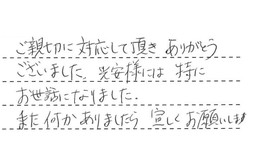 ご親切に対応して頂き ありがとう
ございました。兴安様には 特に
お世話になりました.
また何かありましたら 宜しくお願いします